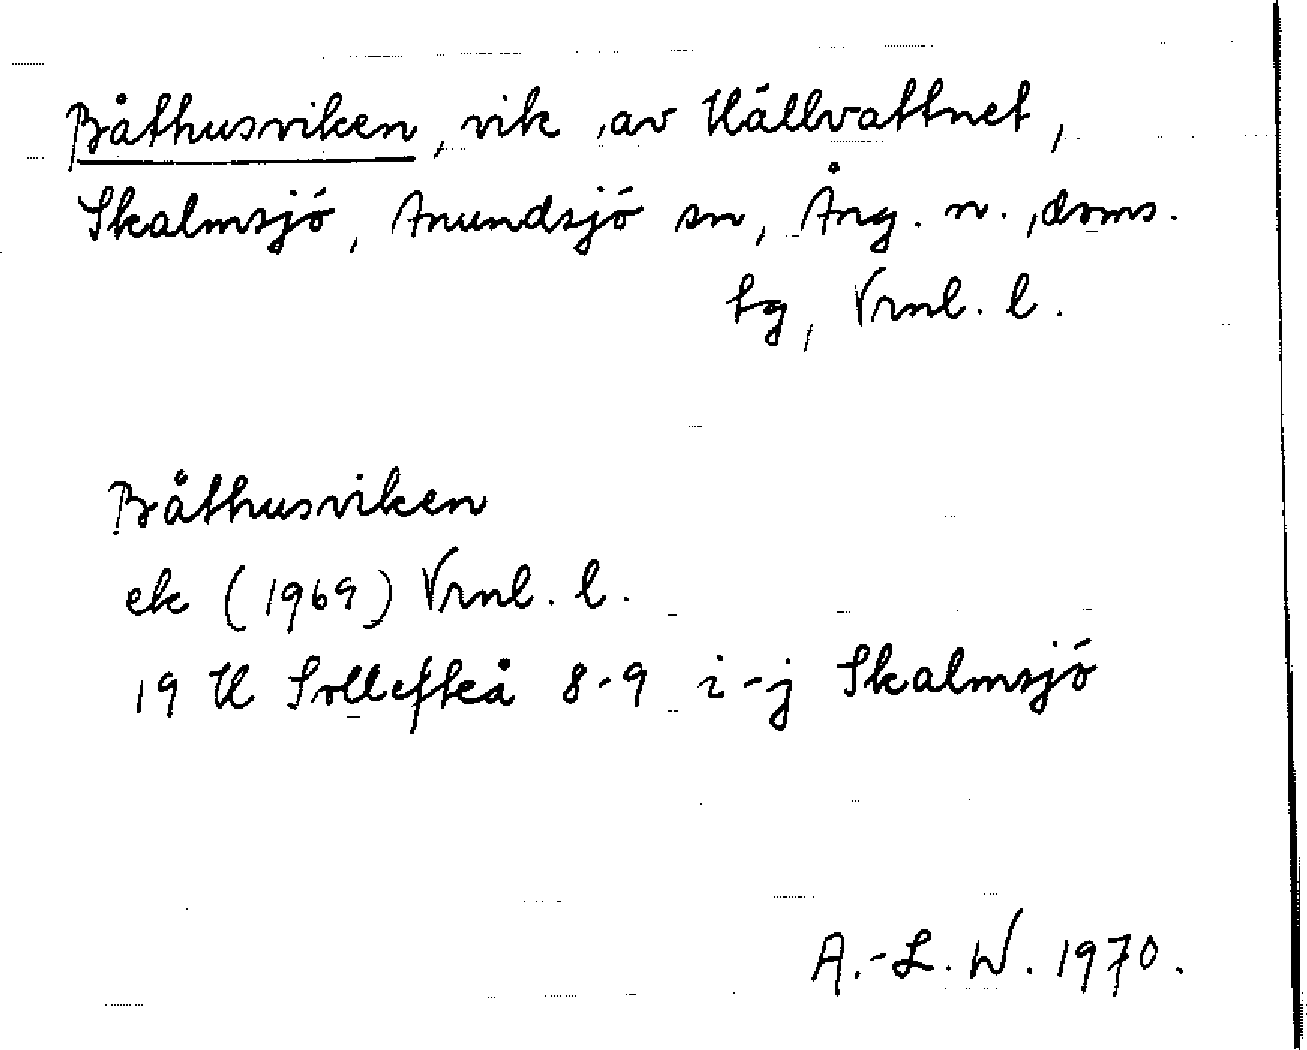 Båthusviken, vik av Hällvattnet,
Skalmsjö, Anundsjö sn, Ång. n. doms.
tg, Vrnl. l.
Båthusviken
ek (1969) Vrnl. l.
19 H Sollefteå 8-9 i-j Skalmsjö
A.-L. W. 1970.